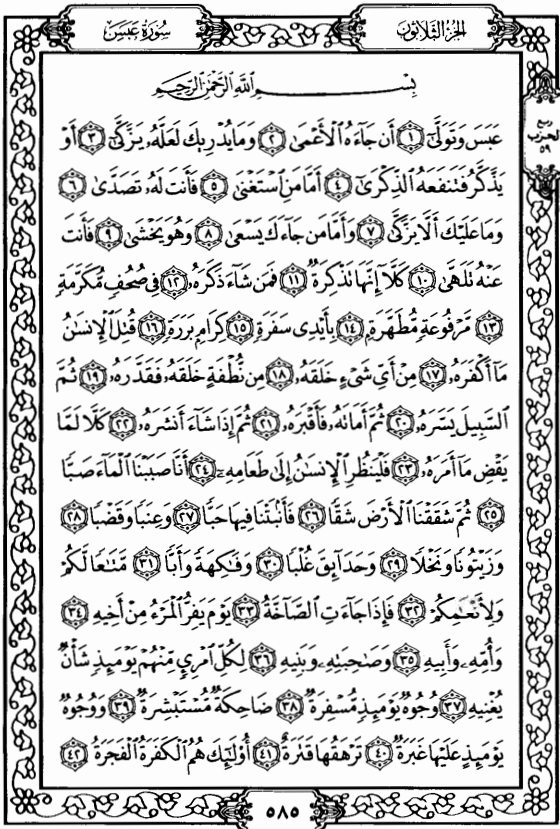 سُورَةُ عَبَسَ
الجُزْءُ الثَّلَاثُونَ
بِسْمِ اللَّهِ الرَّحْمَٰنِ الرَّحِيمِ
عَبَسَ وَتَوَلَّىٰٓ ١ أَن جَآءَهُ ٱلْأَعْمَىٰ ٢ وَمَا يُدْرِيكَ لَعَلَّهُۥ يَزَّكَّىٰٓ ٣ أَوْ
ربع
الحزب
٥٩
يَذَّكَّرُ فَتَنفَعَهُ ٱلذِّكْرَىٰٓ ٤ أَمَّا مَنِ ٱسْتَغْنَىٰ ٥ فَأَنتَ لَهُۥ تَصَدَّىٰ ٦
وَمَا عَلَيْكَ أَلَّا يَزَّكَّىٰ ٧ وَأَمَّا مَن جَآءَكَ يَسْعَىٰ ٨ وَهُوَ يَخْشَىٰ ٩ فَأَنتَ
عَنْهُ تَلَهَّىٰ ١٠ كَلَّآ إِنَّهَا تَذْكِرَةٌ ١١ فَمَن شَآءَ ذَكَرَهُۥ ١٢ فِى صُحُفٍ مُّكَرَّمَةٍ
١٣ مَّرْفُوعَةٍ مُّطَهَّرَةٍۭ ١٤ بِأَيْدِى سَفَرَةٍ ١٥ كِرَامٍۭ بَرَرَةٍ ١٦ قُتِلَ ٱلْإِنسَٰنُ
مَآ أَكْفَرَهُۥ ١٧ مِنْ أَىِّ شَىْءٍ خَلَقَهُۥ ١٨ مِن نُّطْفَةٍ خَلَقَهُۥ فَقَدَّرَهُۥ ١٩ ثُمَّ
ٱلسَّبِيلَ يَسَّرَهُۥ ٢٠ ثُمَّ أَمَاتَهُۥ فَأَقْبَرَهُۥ ٢١ ثُمَّ إِذَا شَآءَ أَنشَرَهُۥ ٢٢ كَلَّا لَمَّا
يَقْضِ مَآ أَمَرَهُۥ ٢٣ فَلْيَنظُرِ ٱلْإِنسَٰنُ إِلَىٰ طَعَامِهِۦٓ ٢٤ أَنَّا صَبَبْنَا ٱلْمَآءَ صَبًّا
٢٥ ثُمَّ شَقَقْنَا ٱلْأَرْضَ شَقًّا ٢٦ فَأَنۢبَتْنَا فِيهَا حَبًّا ٢٧ وَعِنَبًا وَقَضْبًا ٢٨
وَزَيْتُونًا وَنَخْلًا ٢٩ وَحَدَآئِقَ غُلْبًا ٣٠ وَفَٰكِهَةً وَأَبًّا ٣١ مَّتَٰعًا لَّكُمْ
وَلِأَنْعَٰمِكُمْ ٣٢ فَإِذَا جَآءَتِ ٱلصَّآخَّةُ ٣٣ يَوْمَ يَفِرُّ ٱلْمَرْءُ مِنْ أَخِيهِ ٣٤
وَأُمِّهِۦ وَأَبِيهِ ٣٥ وَصَٰحِبَتِهِۦ وَبَنِيهِ ٣٦ لِكُلِّ ٱمْرِئٍ مِّنْهُمْ يَوْمَئِذٍ شَأْنٌ
يُغْنِيهِ ٣٧ وُجُوهٌ يَوْمَئِذٍ مُّسْفِرَةٌ ٣٨ ضَاحِكَةٌ مُّسْتَبْشِرَةٌ ٣٩ وَوُجُوهٌ
يَوْمَئِذٍ عَلَيْهَا غَبَرَةٌ ٤٠ تَرْهَقُهَا قَتَرَةٌ ٤١ أُو۟لَٰٓئِكَ هُمُ ٱلْكَفَرَةُ ٱلْفَجَرَةُ ٤٢
٥٨٥